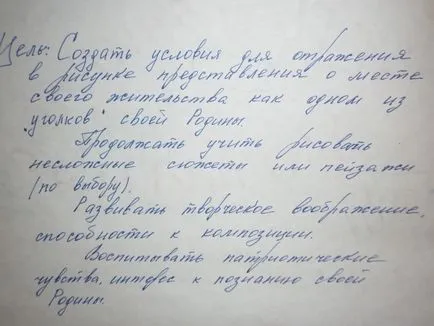 Цель: Создать условия для отражения
в рисунке представления о месте
своего жительства как одном из
"уголков" своей Родины.
Продолжать учить рисовать
несложные сюжеты или пейзажи
(по выбору).
Развивать творческое воображение,
способности к композиции.
Воспитывать патриотические
чувства, интерес к познанию своей
Родины.